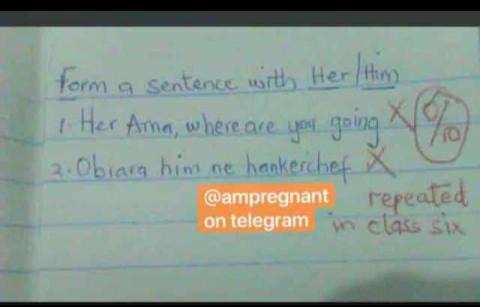 Form a sentence with Her/Him
1. Her Ama, where are you going X
0/10
2. Obiara him ne hankerchef X
@ampregnant
on telegram
repeated
in class six